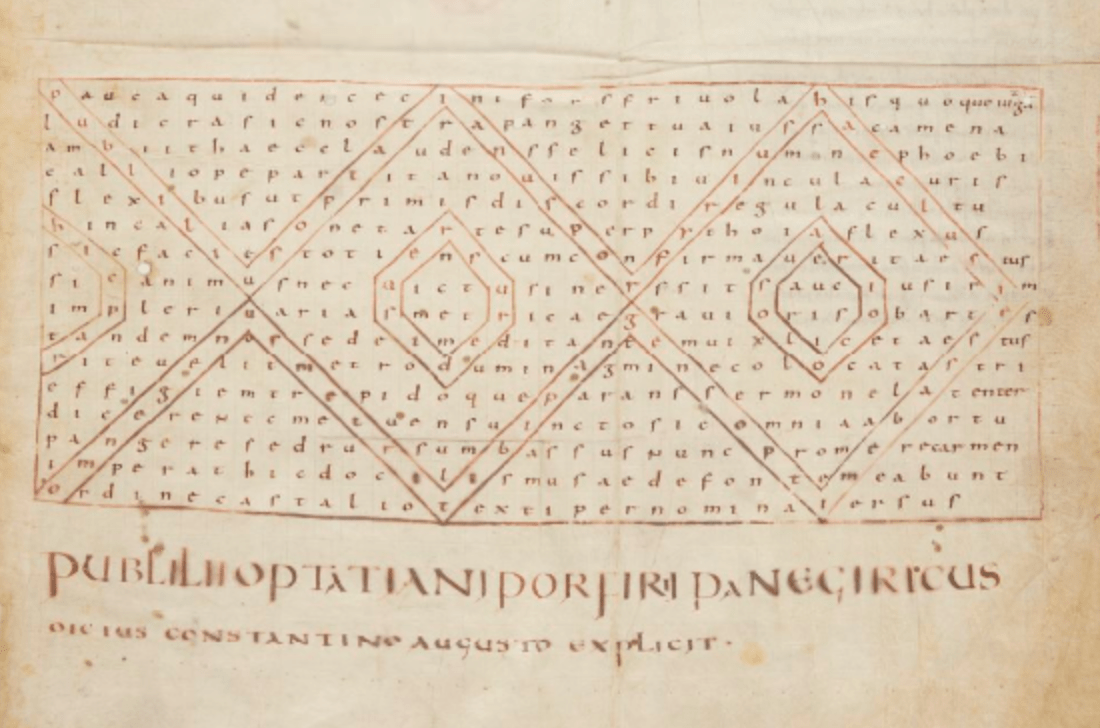 paucaquideiceciniforsfriuolahisquoqueiuga
ludicrasicnostrapangettuaiussacamena
ambiithaeccelaudensfelicisnuminephoebi
calliopepartitanouissibiuinculacuris
flexibusutprimisdiscordiregulacultu
hincaliasonetartesuperprthoiaflexus
sicfaciestotienscumconfirmaueritaestus
sieanimusnecuictusinerssitsauciusirim
impleriuariasmetricaegrauiorisobartes
tandemnorsedeimeditantemuixlicetaestus
riteuelitmetroduminagminecolocatastri
effigiemtrepidoqueparanssermonelatenter
dicerextemetuensuinctosicomniaabortu
pangeresedrursumbassusnuncpromerecarmen
imperathicdocilismusaedefontemeabunt
ordinecastaliotextipernominauersus
PUBLILII OPTATIANI PORFIRII PANEGIRICUS
DICTUS CONSTANTINO AUGUSTO EXPLICIT·